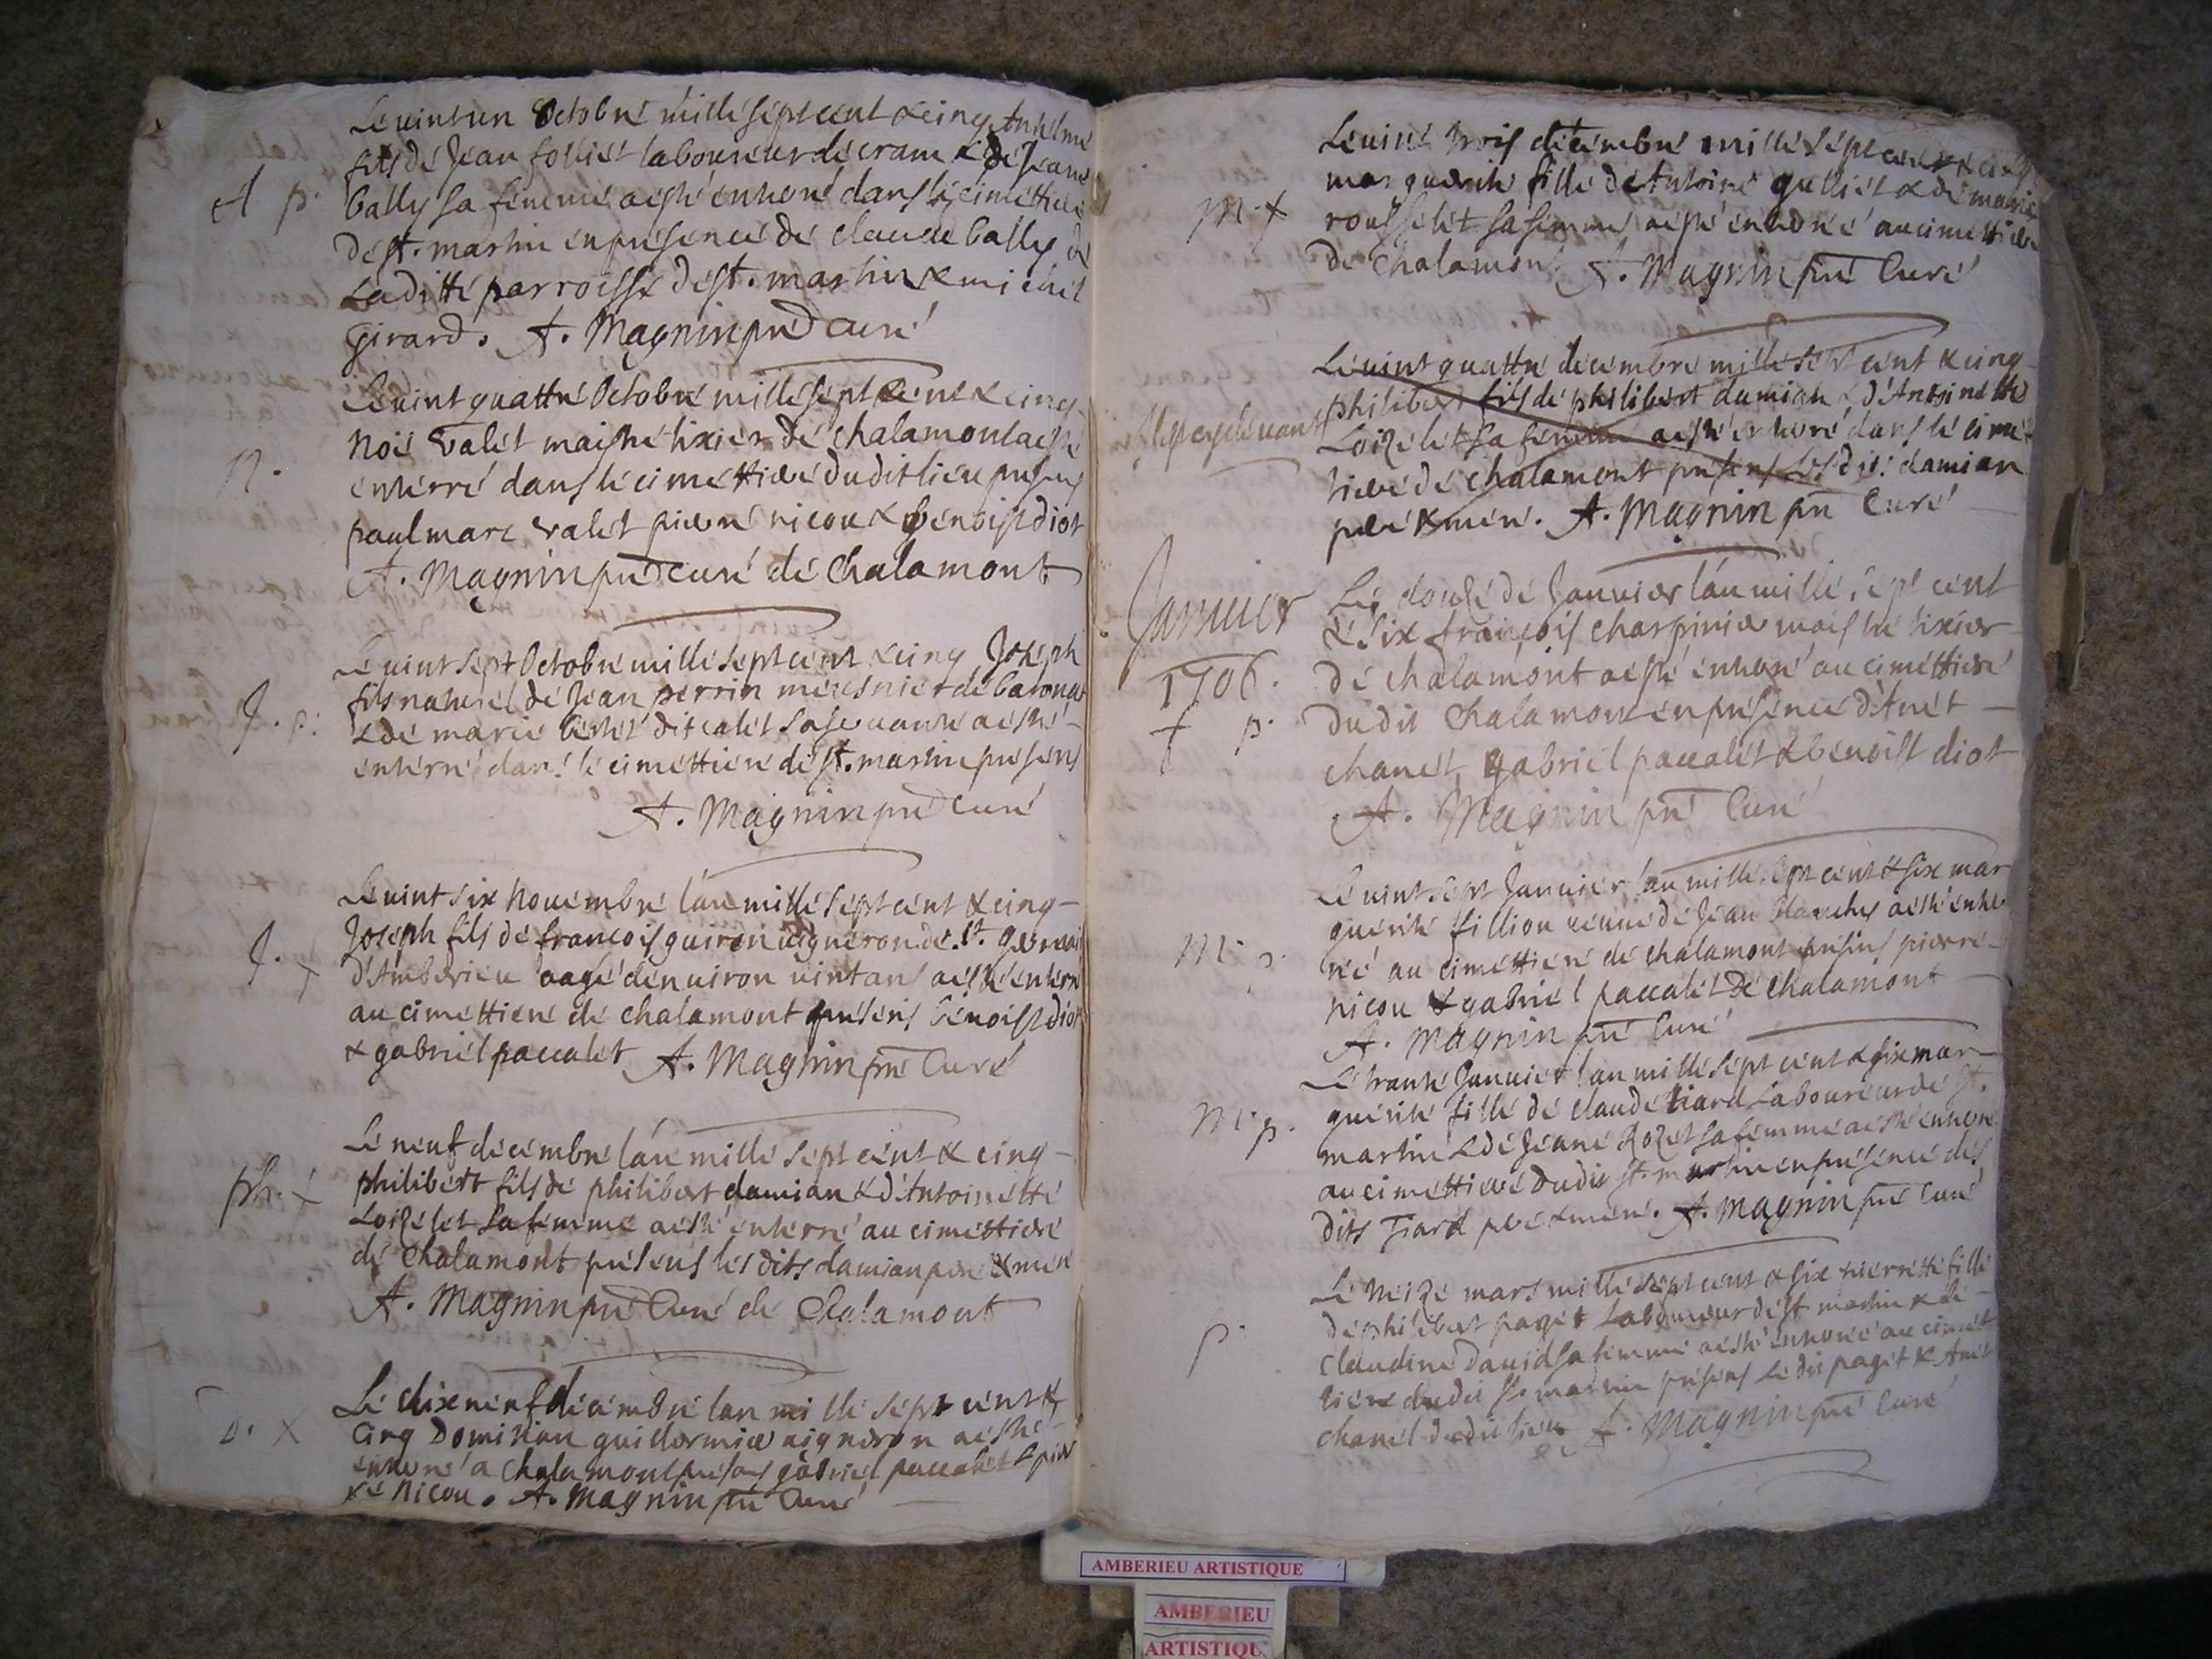 Le uint un Octobre mille sept cent & cinq Anthelme
fils de Jean folliet laboureur de cram & de Jeane
A p.
bally sa femme a esté enterré dans le cimettiere
de st. martin en presence de claude bally de
laditte parroisse de st. martin & michel
Girard. A. Magnin pre curé
Le uint quattre Octobre mille sept cent & cinq
Noé valet maistre tixier de chalamont a esté
n.
enterré dans le cimettiere dudit lieu presens
paul marc valet pierre nicou & benoist diot
A. Magnin pre curé de Chalamont
Le uint sept Octobre mille sept cent & cinq Joseph
fils naturel de Jean perrin meusnier de
J. p.
& de marie dit calet sa seruante a esté
enterré dans le cimettiere de st. martin presens
A. Magnin pre Curé
Le uint six Nouembre l'an mille sept cent & cinq
Joseph fils de francois guiron uigneron de st. germain
J. +
d'Amberieu aagé denuiron uint ans a esté enterré
au cimettiere de chalamont presens benoist diot
& gabriel paccalet A. Magnin pre Curé
Le neuf decembre l'an mille sept cent & cinq
ph. +
philibert fils de philibert damian & d'Antoinette
Loizelet sa femme a esté enterré au cimettiere
de Chalamont presens les dits damian pere & mere
A. Magnin pre Curé de Chalamont
Le dixneuf decembre l'an mille sept cent &
D. x
cinq Dominian guillermie uigneron a esté
enterré a Chalamont presens gabriel paccalet & pier
re Nicou. A. Magnin pre Curé
Le uint trois decembre mille sept cent & cinq
marguerite fille de Antoine gulliet & de marie
m. +
rousselet sa femme a esté enterré au cimettiere
de Chalamont A. Magnin pre Curé
Le uint quattre decembre mille sept cent & cinq
philibert fils de philibert damian & d'Antoinette
Loizelet sa femme a esté enterré dans le cimet
tiere de chalamont presens les dits damian
pere & mere. A. Magnin pre Curé
Januier
Le douze de Januier l'an mille sept cent
& six françois charpinie maistre tixier
1706.
de chalamont a esté enterré au cimettiere
+ p.
dudit Chalamont en presence d'Anet
chanet, gabriel paccalet & benoist diot
A. Magnin pre Curé
Le uint sept Januier l'an mille sept cent & six mar
guerite fillion ueuue de Jean blanchet a esté enter
m. p.
ré au cimettiere de chalamont presens pierre
nicou & gabriel paccalet de chalamont
A. Magnin pre Curé
Le trante Januier l'an mille sept cent & six mar
guerite fille de claude tiard Laboureur de st.
m. p.
martin & de Jeane Rozet sa femme a esté enterré
au cimettiere dudit st. martin en presence des
dits Tiard pere & mere. A. Magnin pre Curé
Le treize mars mille sept cent & six pierrette fille
de philibert paget Laboureur de st martin & de
p.
Claudine Dauid sa femme a esté enterré au cimet
tiere dudit st. martin presens le dit paget & Anet
chanel dudit lieu A. Magnin pre Curé
AMBERIEU ARTISTIQUE
AMBERIEU
ARTISTIQU